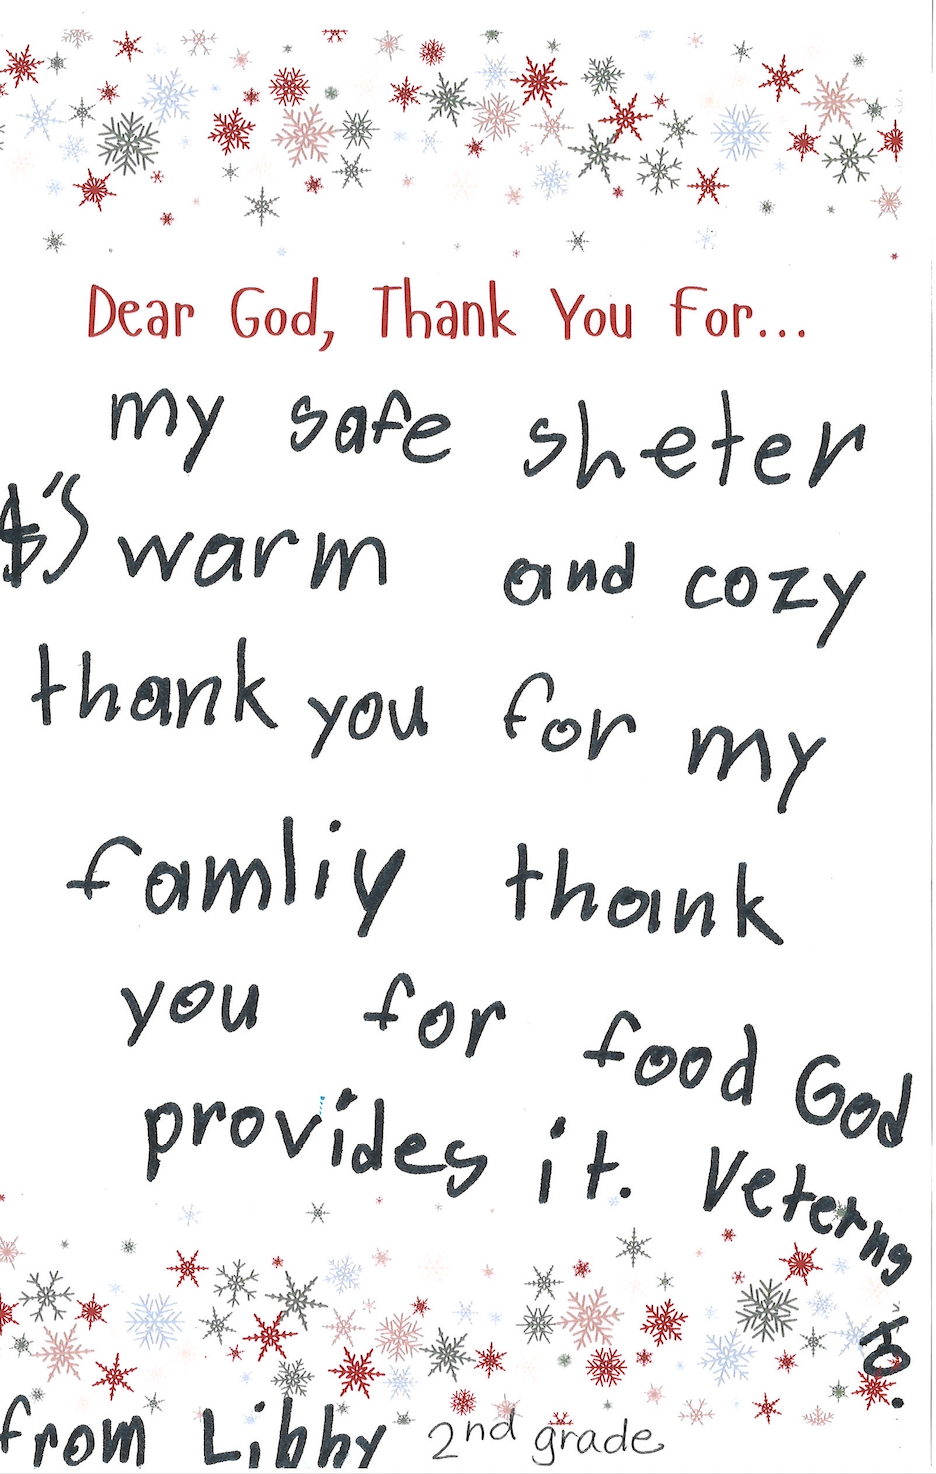 Dear God, Thank You For...
my safe sheter
warm and cozy
thank you for my
famliy thank
you for food God
provides it. Veterns
to.
from Libby 2nd grade